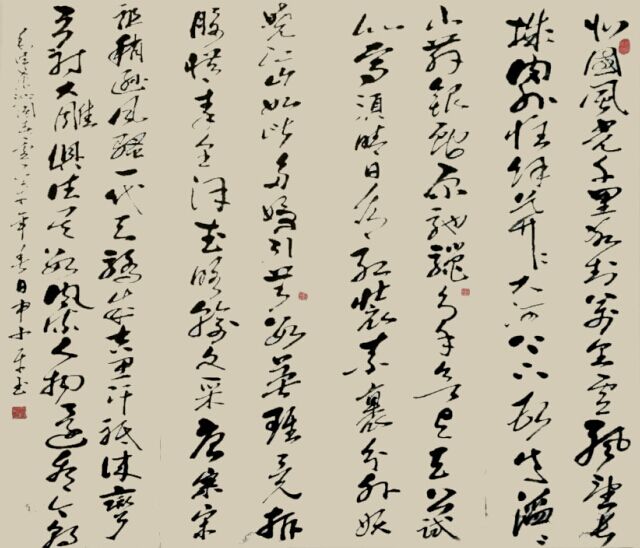 北國風光千里冰封萬里雪飄望長
城內外惟餘莽莽大河上下頓失滔滔
山舞銀蛇原馳蠟象欲與天公試
比高須晴日看紅裝素裹分外妖
嬈江山如此多嬌引無數英雄競折
腰惜秦皇漢武略輸文采唐宗宋
祖稍遜風騷一代天驕成吉思汗祗識彎
弓射大雕俱往矣數風流人物還看今朝
毛澤東沁園春雪年春日申書